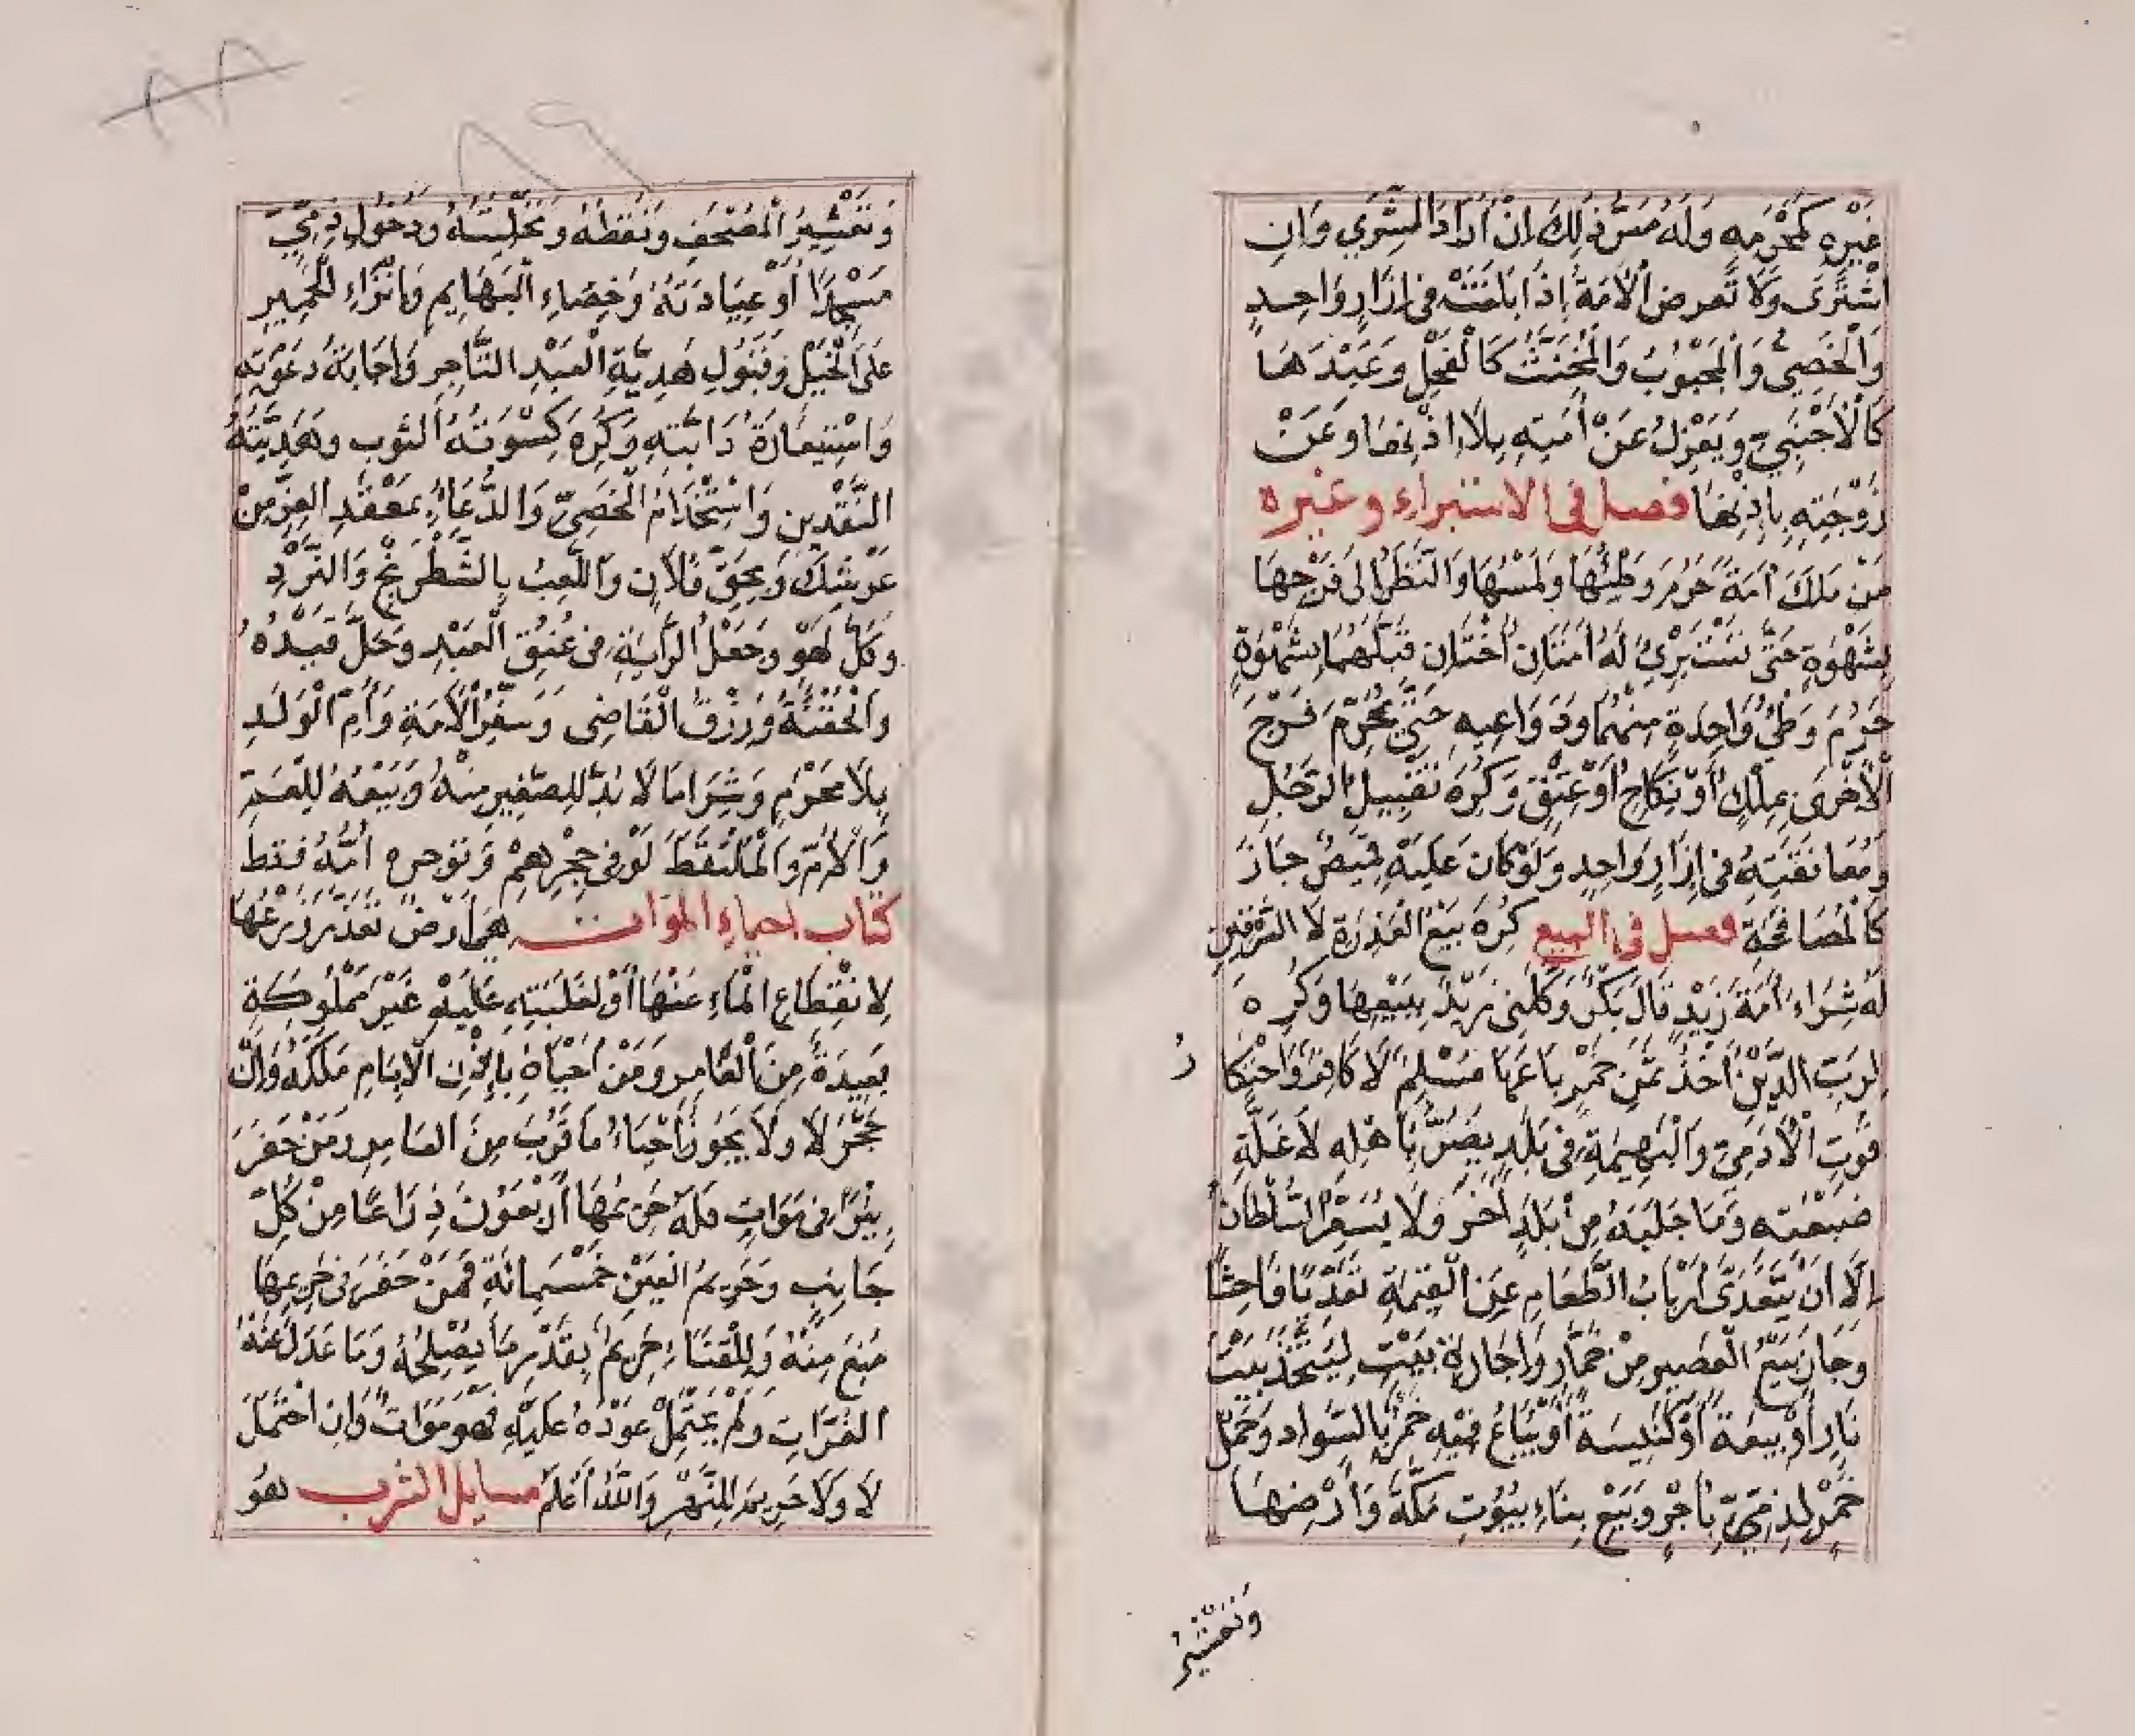 غَيْرِهِ كَمَحْرَمِهِ وَلَهُ مَسُّ ذٰلِكَ اِنْ اَرَادَ الشِّرَي وَاِنِ
اشْتَرَى وَلَا تُعرض الْاَمَةُ اِذَا بَلَغَتْ فِى اِزَارٍ وَاحِدٍ
وَالْخَصِىُّ وَالْمَجْبُوْبُ وَالْمُخَنَّثُ كَالْفَحْلِ وَعَبْدَهَا
كَالْاَجْنَبِيِّ وَيَعْزِلُ عَنْ اَمَتِهِ بِلَا اِذْنِهَا وَعَنْ
زَوْجَتِهِ بِاِذْنِهَا فصل فى الاستبراء وغيره
مَنْ مَلَكَ اَمَةً حَرُمَ وَطْئُهَا وَلَمْسُهَا وَالنَّظَرُ اِلى فَرْجِهَا
بِشَهْوَةٍ حَتَّى تَسْتَبْرِئَ لَهُ اَمَتَانِ اُخْتَانِ قَبَّلَهُمَا بِشَهْوَةٍ
حَرُمَ وَطْئُ وَاحِدَةٍ مِنْهُمَا وَدَوَاعِيهِ حَتَّى يُحَرِّمَ فَرْجَ
الْاُخْرَى بِمِلْكٍ اَوْ نِكَاحٍ اَوْ عِتْقٍ وَكُرِهَ تَقْبِيلُ الرَّجُلِ
وَمُعَانَقَتِهِ فِى اِزَارٍ وَاحِدٍ وَلَوْ كَانَ عَلَيْهِ قَمِيْصٌ جَازَ
كَالْمُصَافَحَةِ فصل فى البيع كُرِهَ بَيْعُ الْعَذِرَةِ لَا السِّرْقِيْنِ
لَهُ شِرَاءُ اَمَةَ زَيْدٍ قَالَ بَكْرٌ وَكَّلَنِى زَيْدٌ بِبَيْعِهَا وَكُرِهَ
لِرَبِّ الدَّيْنِ اَخْذُ ثَمَنِ خَمْرٍ بَاعَهَا مُسْلِمٌ لَا كَافِرٌ وَاحْتِكَا
رُ
قُوْتِ الْاٰدَمِيِّ وَالْبَهِيمَةِ فِى بَلَدٍ يَضُرُّ بِاَهْلِهِ لَا غَلَّةِ
ضَيْعَتِهِ وَمَا جَلَبَهُ مِنْ بَلَدٍ اٰخَرَ وَلَا يُسَعِّرُ السُّلْطَانُ
اِلَّا اَنْ يَتَعَدَّى اَرْبَابُ الطَّعَامِ عَنِ الْقِيْمَةِ تَعَدِّيًا فَاحِشًا
وَجَازَ بَيْعُ الْعَصِيرِ مِنْ خَمَّارٍ وَاِجَارَةُ بَيْتٍ لِيُتَّخَذَ بَيْتَ
نَارٍ اَوْ بِيعَةً اَوْ كَنِيسَةً اَوْ يُبَاعُ فِيْهِ خَمْرٌ بِالسَّوَادِ وَحَمْلُ
خَمْرٍ لِذِمِّيٍّ بِاَجْرٍ وَبَيْعُ بِنَاءِ بُيُوْتِ مَكَّةَ وَاَرْضِهَا
وَتَعْشِيْرُ
٨٨
٨٦
وَتَعْشِيْرُ الْمُصْحَفِ وَنَقْطُهُ وَتَحْلِيَتُهُ وَدُخُوْلُ ذِمِّيٍّ
مَسْجِدًا اَوْ عِيَادَتُهُ وَخِصَاءِ الْبَهَايِمِ وَاِنْزَاءِ الْحَمِيرِ
عَلَى الْخَيْلِ وَقَبُوْلِ هَدِيَّةِ الْعَبْدِ التَّاجِرِ وَاِجَابَةُ دَعْوَتِهِ
وَاسْتِعَارَةُ دَابَّتِهِ وَكُرِهَ كِسْوَتُهُ الثوب وَهَدِيَّتُهُ
النَّقْدَيْنِ وَاسْتِخْدَامُ الْخَصِىِّ وَالدُّعَاءُ بِمَعْقَدِ الْعِزِّ مِنْ
عَرْشِكَ وَبِحَقِّ فُلَانٍ وَاللَّعِبُ بِالشَّطْرَنْجِ وَالنَّرْدِ
وَكُلُّ لَهْوٍ وَجَعْلُ الرَّايَةِ فِى عُنُقِ الْعَبْدِ وَحَلَّ قَيْدُهُ
وَالْحُقْنَةُ وَرِزْقُ الْقَاضِى وَسَفَرُ الْاَمَةِ وَاُمِّ الْوَلَدِ
بِلَا مَحْرَمٍ وَشِرَا مَا لَا بُدَّ لِلصَّغِيرِ مِنْهُ وَبَيْعُهُ لِلْعَمِّ
وَالْاُمِّ وَالْمُلْتَقِطَ لَوْ فِى حِجْرِهِمْ وَتؤجره اُمُّهُ فَقَط
كتاب احياء الموات هِىَ اَرْضٌ تَعَذَّرَ زَرْعُهَا
لِانْقِطَاعِ الْمَاءِ عَنْهَا اَوْ لِغَلَبَتِهِ عَلَيْهِ غَيْرُ مَمْلُوكَةٍ
بَعِيدَةٌ مِنَ الْعَامِرِ وَمَنْ اَحْيَاهُ بِاِذْنِ الْاِمَامِ مَلَكَهُ وَاِنْ
حَجَّرَ لَا وَلَا يَجُوزُ اِحْيَاءُ مَا قَرُبَ مِنَ الْعَامِرِ وَمَنْ حَفَرَ
بِيْرًا فِى مَوَاتٍ فَلَهُ حَرِيمُهَا اَرْبَعُوْنَ ذِرَاعًا مِنْ كُلِّ
جَانِبٍ وَحَرِيمُ الْعَيْنِ خَمْسَمِائَةٍ فَمَنْ حَفَرَ فِى حَرِيمِهَا
مُنِعَ مِنْهُ وَلِلْقَنَاءِ حَرِيمٌ بِقَدْرِ مَا يُصْلِحُهُ وَمَا عَدَلَ عَنْهُ
الْفُرَاتِ وَلَمْ يَحْتَمِلْ عَوْدُهُ عَلَيْهِ فَهُوَ مَوَاتٌ وَاِنِ احْتَمَلَ
لَا وَلَا حَرِيمَ لِلنَّهْرِ وَاللّٰهُ اَعْلَمُ مسايل الشرب هُوَ